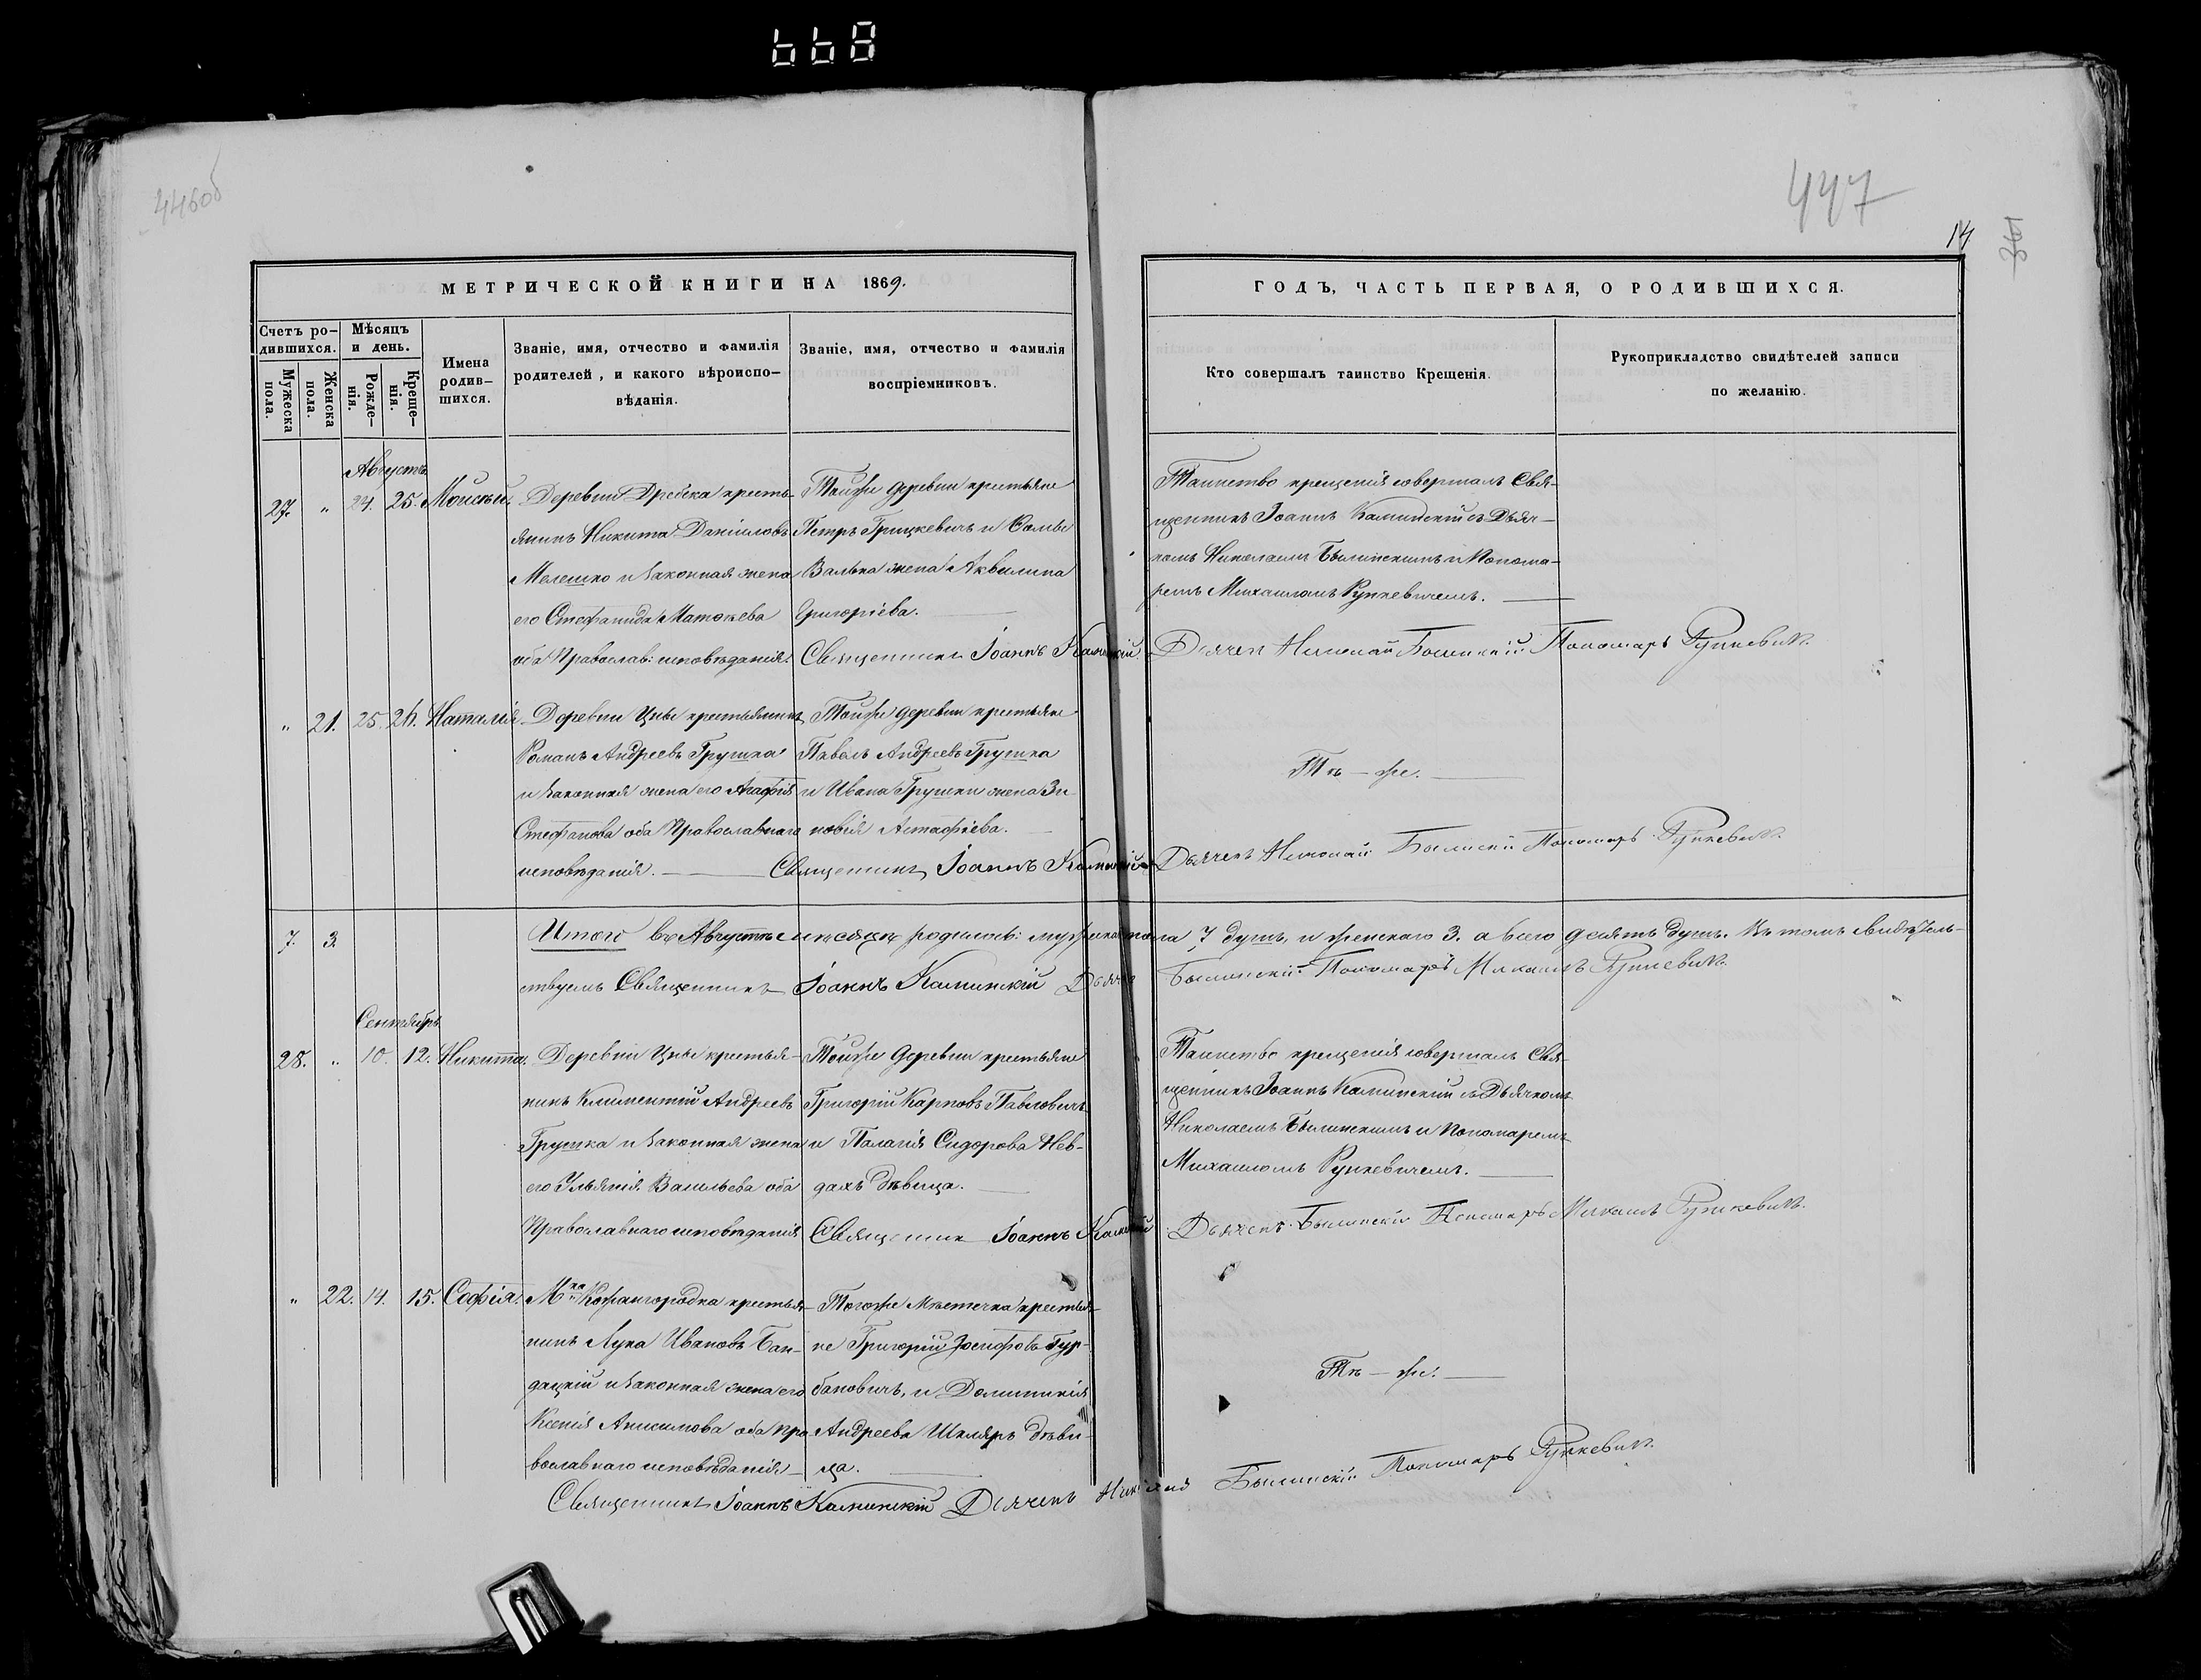 668
446об
447
14
МЕТРИЧЕСКОЙ КНИГИ НА 1869.
ГОДЪ, ЧАСТЬ ПЕРВАЯ, О РОДИВШИХСЯ.
Счетъ ро-
дившихся.
Мѣсяцъ
и день.
Мужеска
пола.
Женска
пола.
Рожде-
нія.
Креще-
нія.
Имена
родив-
шихся.
Званіе, имя, отчество и фамилія
родителей, и какого вѣроиспо-
вѣданія.
Званіе, имя, отчество и фамилія
воспріемниковъ.
Кто совершалъ таинство Крещенія.
Рукоприкладство свидѣтелей записи
по желанію.
Августъ
27. " 24. 25. Моисей.
Деревни Дребска кресть-
янинъ Никита Даніиловъ
Мелешко и законная жена
его Стефанида Матѳеева
оба Православ: исповѣданія.
Тойже деревни крестьяне
Петръ Грицкевичъ и Ѳомы
Валька жена Аквилина
Григоріева.
Таинство крещенія совершалъ Свя-
щенникъ Іоаннъ Калинскій съ Дьяч-
комъ Николаемъ Былинскимъ и Понома-
ремъ Михаиломъ Рункевичемъ.
Священникъ Іоаннъ Калинскій Дьячекъ Николай Былинскій Пономарь Рункевичъ.
" 21. 25. 26. Наталія.
Деревни Цны крестьянинъ
Романъ Андреевъ Грушка
и законная жена его Агафія
Стефанова оба Православнаго
исповѣданія.
Тойже деревни крестьяне
Павелъ Андреевъ Грушка
и Ивана Грушки жена Зи-
новія Астафіева.
Тѣ-же.
Священникъ Іоаннъ Калинскій Дьячекъ Николай Былинскій Пономарь Рункевичъ.
7. 3.
Итого въ Августѣ мѣсяцѣ родилось: мужеска пола 7 душъ, и женскаго 3. а всего десять душъ. Въ томъ свидѣтель-
ствуемъ Священникъ Іоаннъ Калинскій Дьячекъ Былинскій Пономарь Михаилъ Рункевичъ.
Сентябрь
28. " 10. 12. Никита.
Деревни Цны крестья-
нинъ Климентій Андреевъ
Грушка и законная жена
его Ульянія Васильева оба
Православнаго исповѣданія
Тойже деревни крестьяне
Григорій Карповъ Павловичъ
и Палагія Сидорова Нев-
дахъ дѣвица.
Таинство крещенія совершалъ Свя-
щенникъ Іоаннъ Калинскій съ Дьячкомъ
Николаемъ Былинскимъ и Пономаремъ
Михаиломъ Рункевичемъ.
Священникъ Іоаннъ Калинскій Дьячекъ Былинскій Пономарь Михаилъ Рункевичъ.
" 22. 14. 15. Софія.
М-ка Кожангородка крестья-
нинъ Лука Ивановъ Бан-
дацкій и законная жена его
Ксенія Анисимова оба Пра-
вославнаго исповѣданія
Тогоже Мѣстечка крестья-
не Григорій Іосифовъ Гур-
бановичъ, и Доминикія
Андреева Шкляръ дѣви-
ца.
Тѣ-же.
Священникъ Іоаннъ Калинскій Дьячекъ Николай Былинскій Пономарь Рункевичъ.